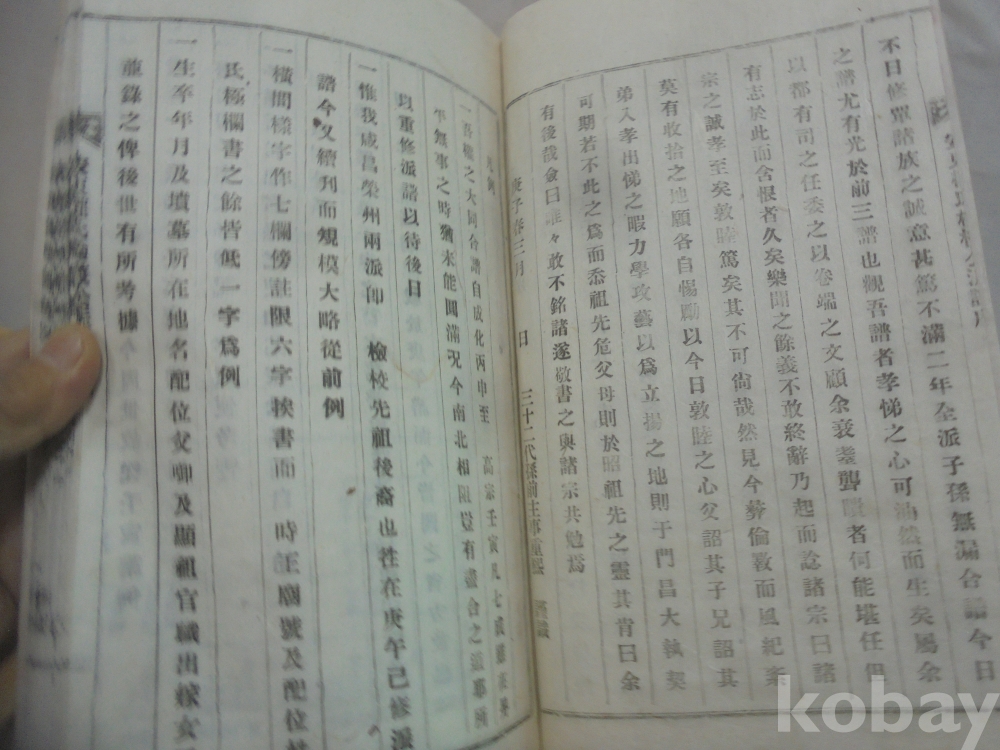 不日修單諸族之誠意甚篤不滿二年全派子孫無漏合譜今日
之譜尤有光於前三譜也觀吾譜者孝悌之心可油然而生矣屬余
以都有司之任委之以卷端之文顧余衰耄聾 者何能堪任但
有志於此而含恨者久矣樂聞之餘義不敢終辭乃起而諗諸宗曰諸
宗之誠孝至矣敦睦篤矣其不可尙哉然見今彛倫斁而風紀紊
莫有收拾之地顧各自惕勵以今日敦睦之心父詔其子兄詔其
弟入孝出悌之暇力學攻藝以爲立揚之地則于門昌大執契
可期若不此之爲而忝祖先危父母則於昭祖先之靈其肯曰余
有後哉僉曰唯々敢不銘諸遂敬書之與諸宗共勉焉
庚子春三月 日 三十二代孫前主事重 謹識
凡例
一吾權之大同合譜自成化丙申至 高宗壬寅凡七成
平無事之時猶未能圓滿况今南北相阻豈有盡合之
以重修派譜以待後日
一惟我咸昌榮州兩派卽 檢校先祖後裔也徃在庚午己修派
譜今又續刊而規模大略從前例
一橫間樣字作七欄傍註限六字挨書而 時王廟號及配位
氏極欄書之餘皆低一字爲例
一生卒年月及墳墓所在地名配位父啣及顯祖官職出嫁
並錄之俾後世有所考據
kobay